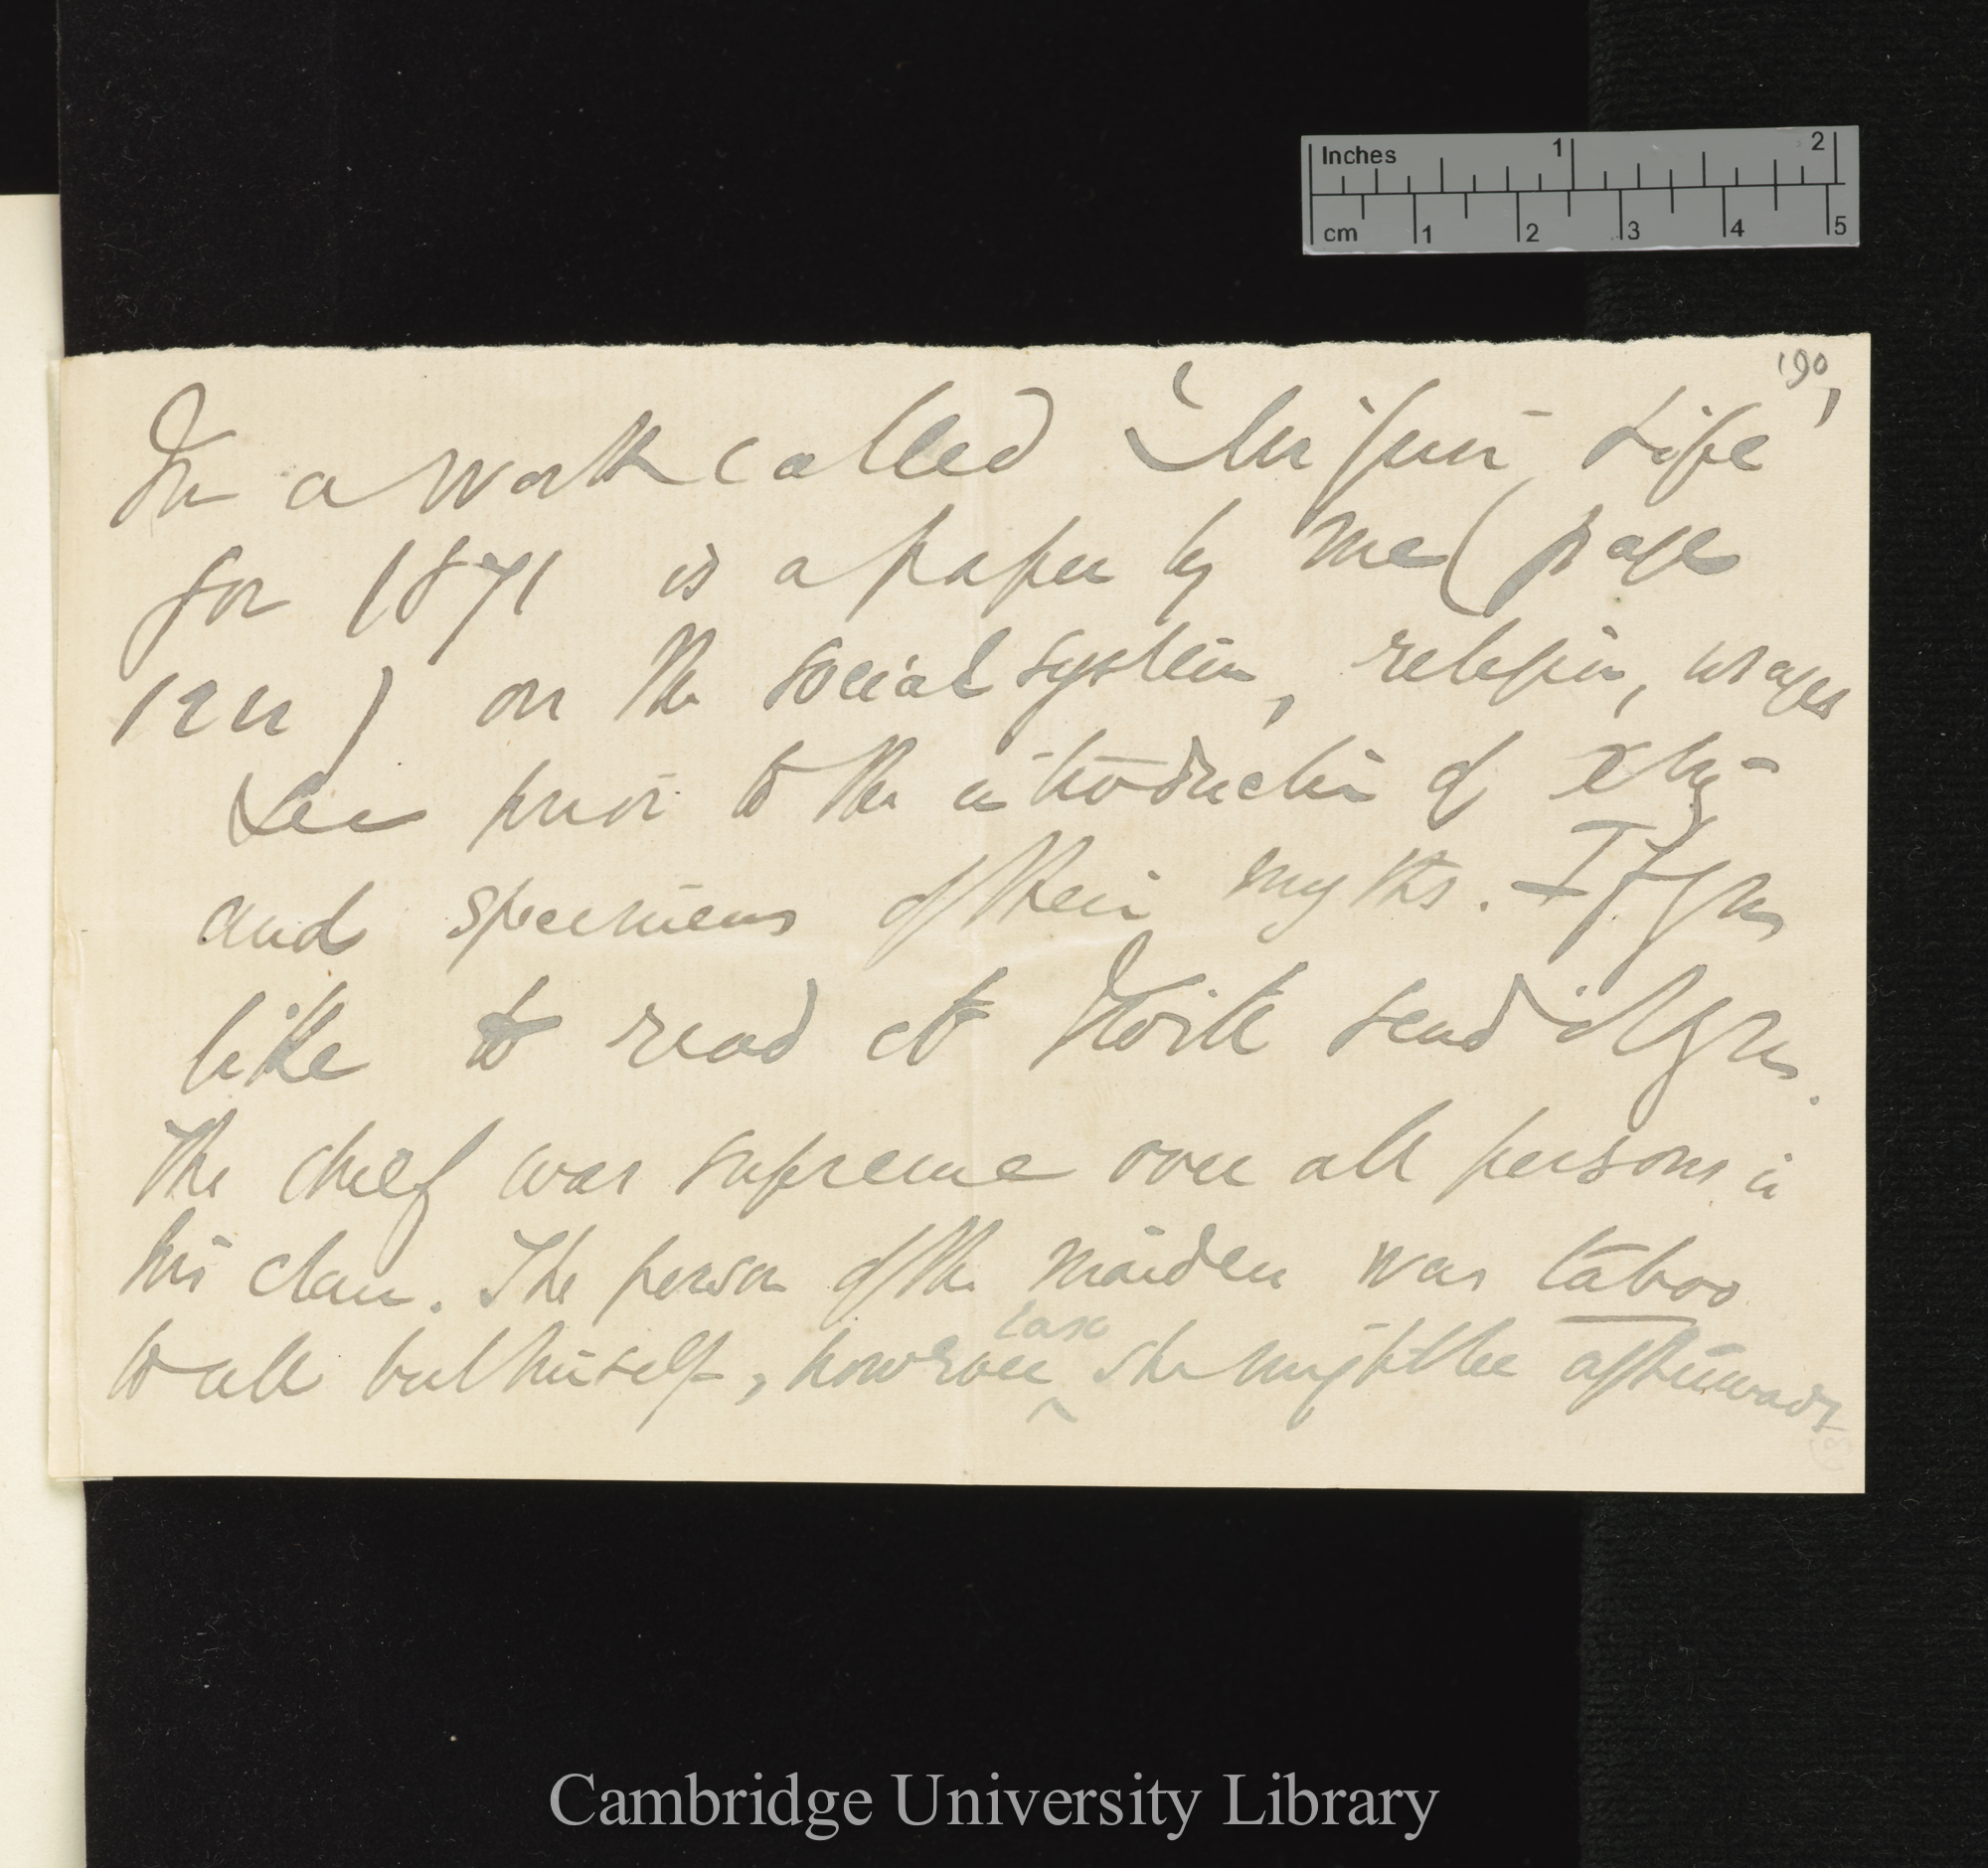 Inches 1 2
cm 1 2 3 4 5
190
In a work called 'Mission Life'
for 1871 is a paper by me (page
) on the social system, religion, usages
&c prior to the introduction of Xty-
and specimens of their myths. If you
like to read it I will send it you.
The chief was supreme over all persons in
his clan. The person of the maiden was taboo
case
to all but himself, however she might be afterwards
Cambridge University Library